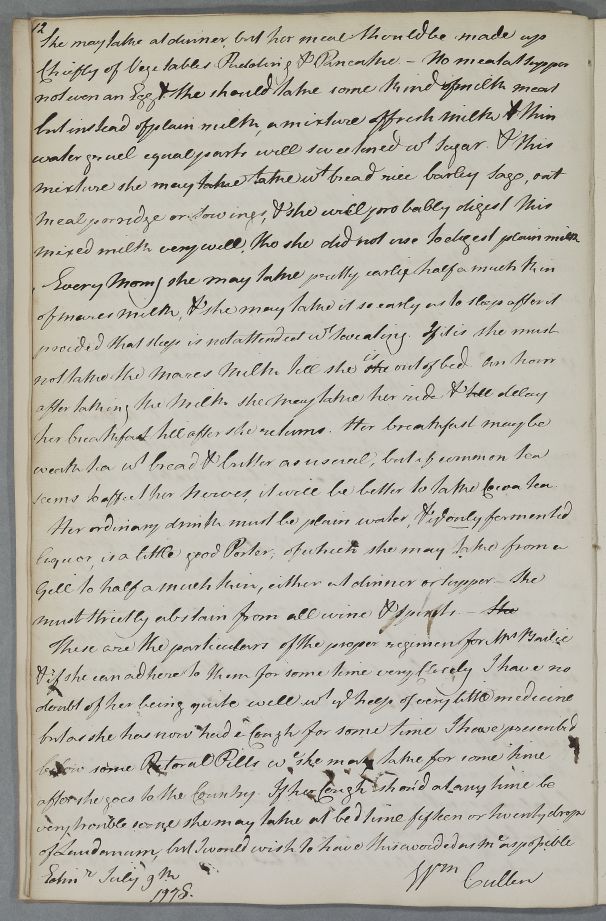 12
She may take at dinner but her meal should be made up
Chiefly of Vegetables Pudding & Pancake – No meat at supper
not even an Egg & she should take some kind of milk meat
but instead of plain milk, a mixture of fresh milk & thin
water gruel equal parts well sweetened wt sugar. & this
mixture she may take wt bread rice barley Sago, oat
meal porridge or sowings, & she will probably digest this
mixed milk very well, tho she did not use to digest plain milk
Every Morng she may take pretty early half a mutchkin
of mares milk, & she may take it so early as to sleep after it
provided that sleep is not attended wt sweating. If it is she must
not take the Mares Milk till she is out of bed. An hour
after taking the Milk she may take her ride & till delay
her breakfast till after she returns. Her breakfast may be
weak tea wt bread & butter as usual, but if common tea
seems to affect her Nerves, it will be better to take Cocoa tea.
Her ordinary drink must be plain water, & yr only fermented
liquor, is a little good Porter, of which she may take from a
Gill to half a mutchkin, either at dinner or supper – She
must strictly abstain from all wine & spirits. – She
These are the particulars of the proper regimen for Mrs Bailie
& if she can adhere to them for some time very closely I have no
doubt of her being quite well wt ye help of very little medicine
but as she has now had a Cough for some time I have prescribed
below some Pectoral Pills wc she may take for some time
after she goes to the Country. If her Cough shou'd at any time be
very troublesome she may take at bed time fifteen or twenty drops
of Laudanum, but I would wish to have this avoided as mc as possible
Edinr July 9th
Wm Cullen